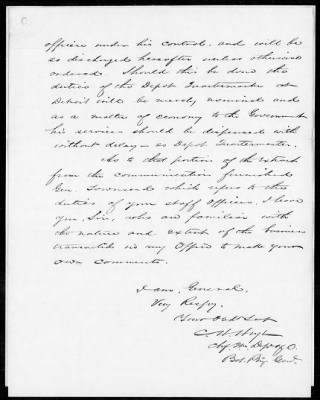 officers under his control, and will be
so discharged hereafter unless otherwise
ordered. Should this be done the
duties of the Depot Quartermaster at
Detroit will be merely nominal and
as a matter of economy to the Government
his services should be dispensed with
without delay - as Depot Quartermaster.
As to that portion of the extract
from the communication furnished
Gen. Townsend which refers to the
duties of your Staff Officers, I leave
you, Sir, who are familiar with
the nature and extent of the business
transacted in my Office to make your
own comments.
I am, General,
Very Respy.
Your Obt Svt
C. H. Hoyt
Chf. Qm. Dept of
Bvt. Brig. Genl.